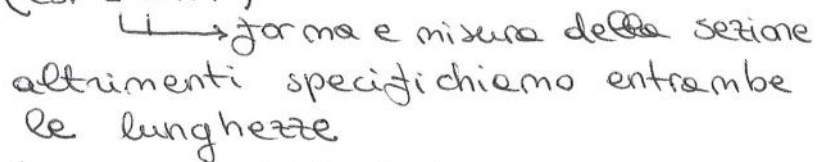 forma e misura della sezione
altrimenti specifichiamo entrambe
le lunghezze